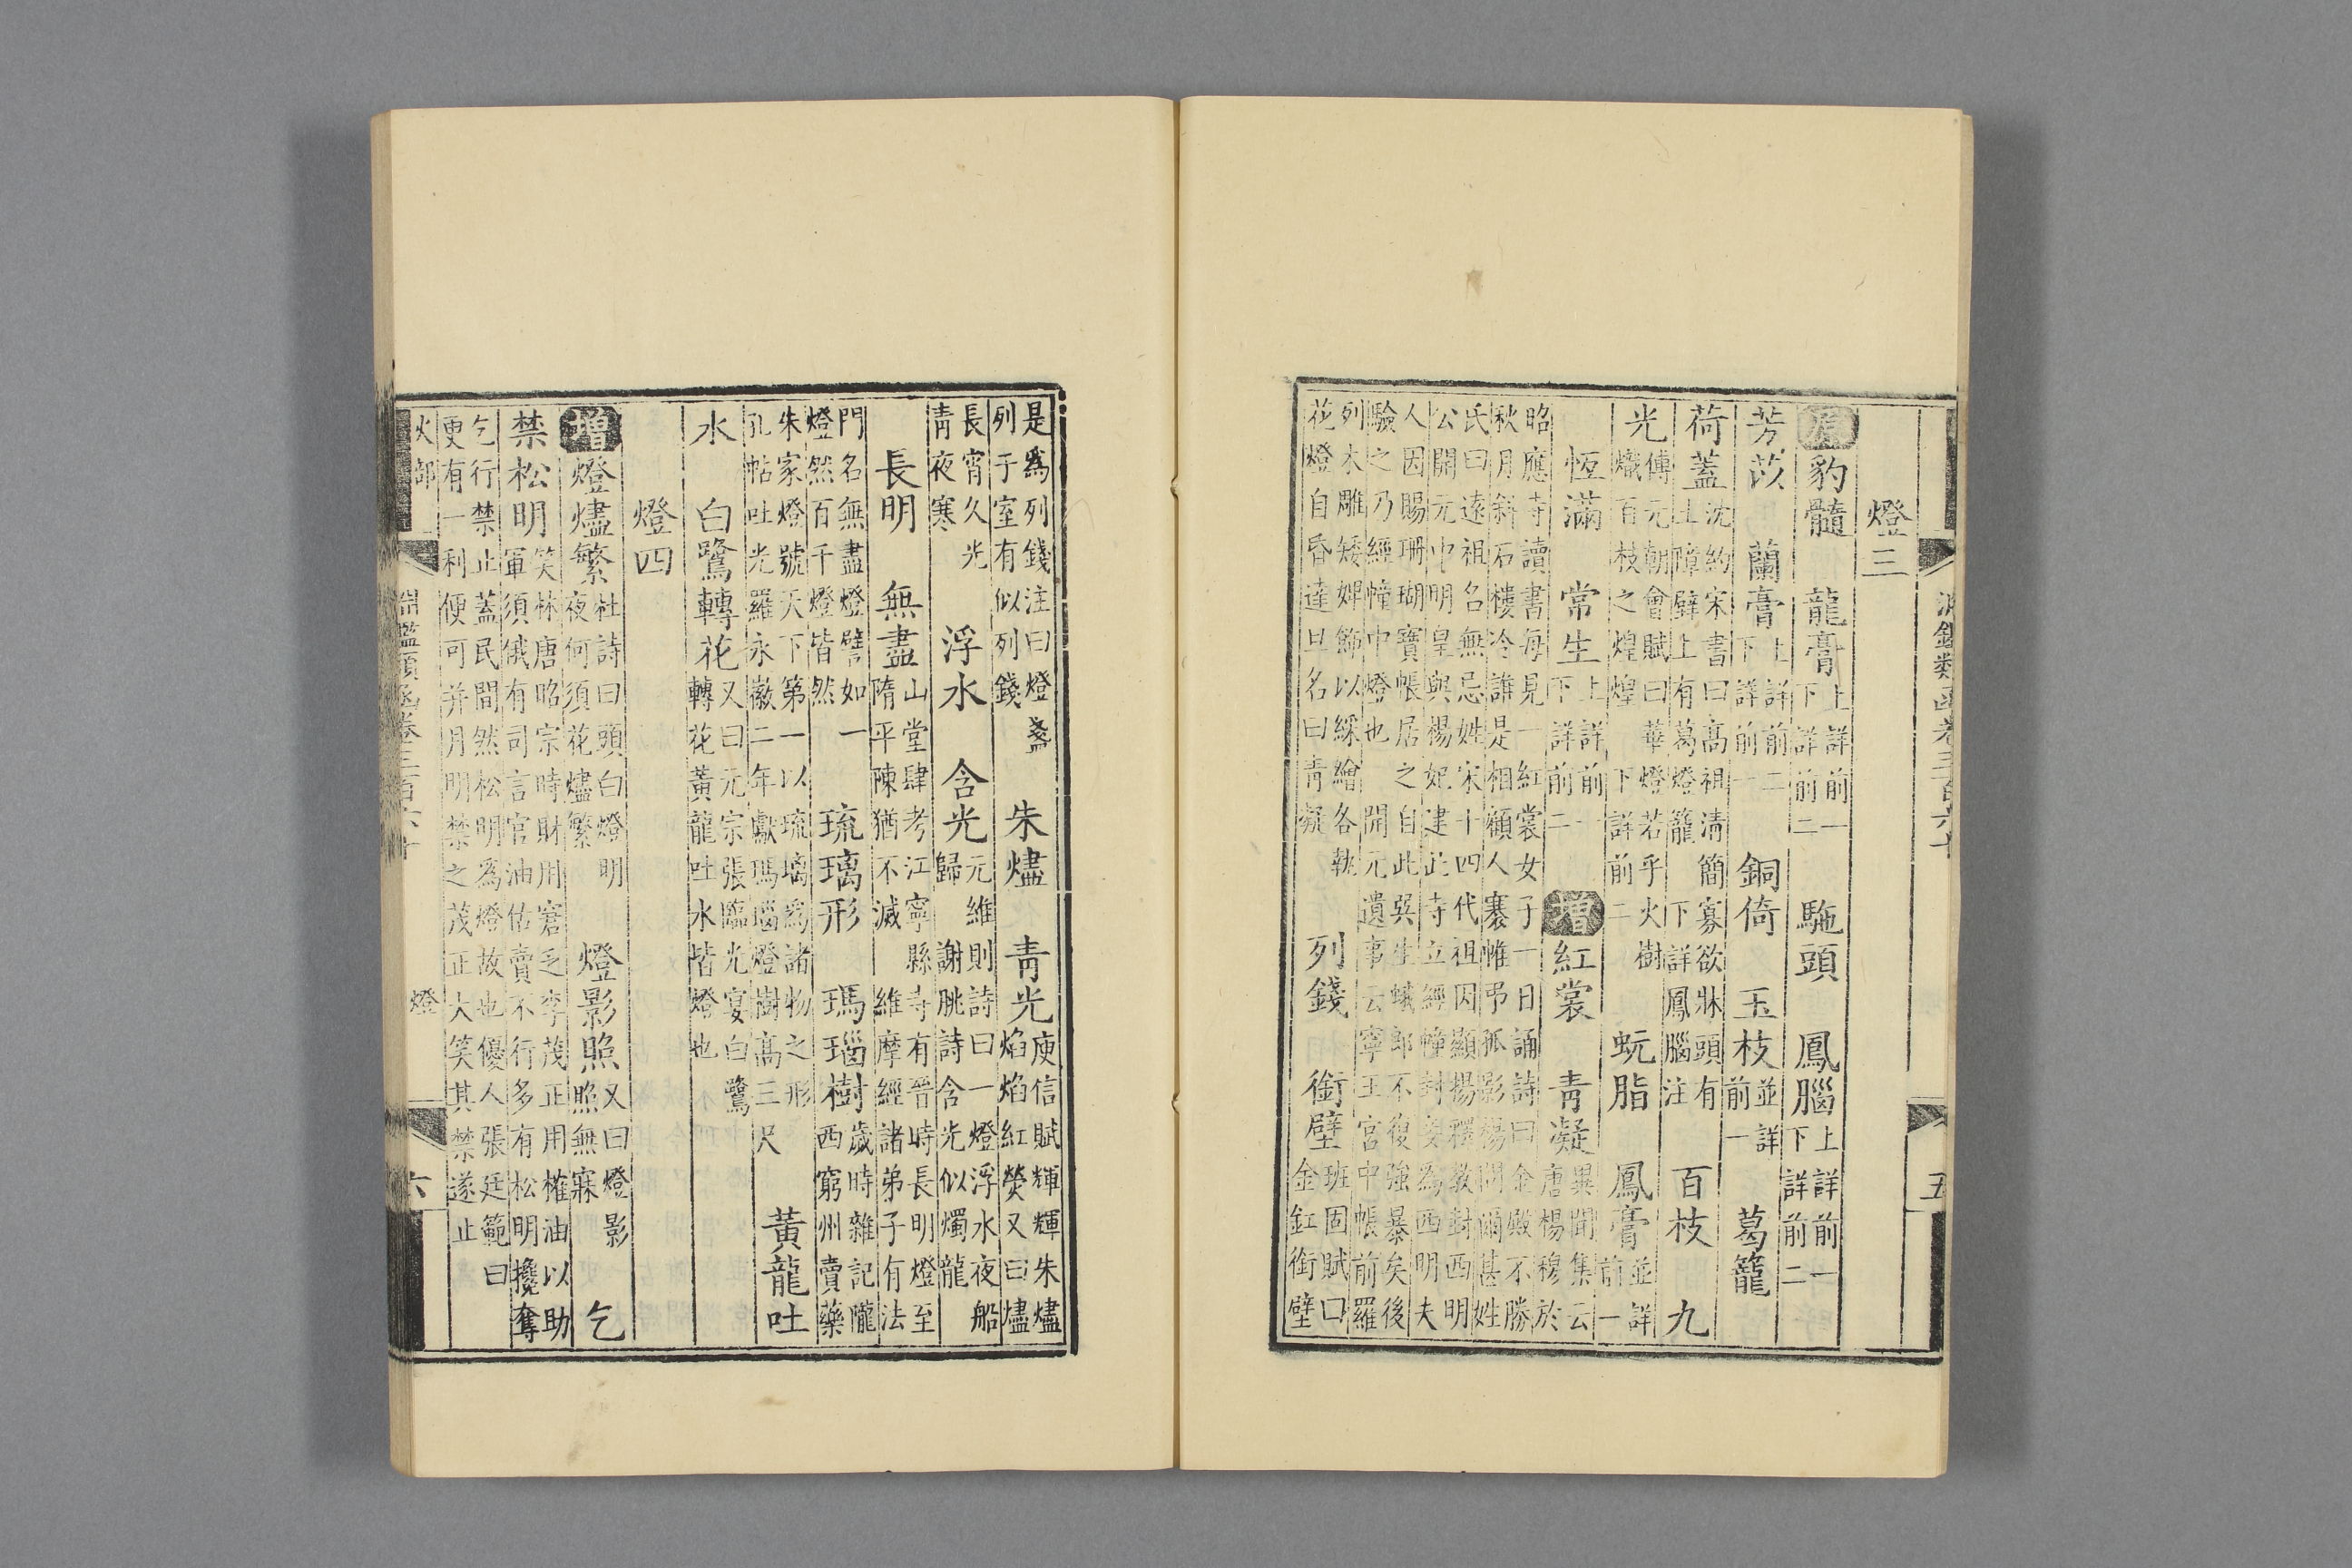 淵鑑類函卷三百六十
五
燈三
原豹髓 龍膏上詳前一下詳前二 駞頭 鳳腦上詳前一下詳前二
芳苡 蘭膏上詳前二下詳前一 銅倚 玉枝並詳前一 葛籠
荷蓋沈約宋書曰高祖清簡寡欲牀頭有土障壁上有葛燈籠下詳鳳腦注 百枝 九
光傅元朝會賦曰華燈若乎火樹熾百枝之煌煌下詳前二 蚖脂 鳳膏並詳前一
恆滿 常生上詳前一下詳前二 增紅裳 青凝異聞集云唐楊穆於
昭應寺讀書每見一紅裳女子一日誦詩曰金殿不勝秋月斜石樓冷誰是相顧人褰帷弔孤影楊問爾甚姓
氏曰遠祖名無忌姓宋十四代祖因顯揚釋教封西明公開元中明皇與楊妃建此寺立經幢封妾為西明夫
人因賜珊瑚寶帳居之自此巽生蛾郎不復強暴矣後驗之乃經幢中燈也 開元遺事云寧王宮中帳前羅
列木雕矮婢飾以綵繪各執花燈自昏達旦名曰青凝 列錢 銜璧班固賦曰金釭銜璧
是爲列錢注曰燈盞列于室有似列錢 朱燼 青光庾信賦輝輝朱燼焰焰紅熒又曰燼
長宵久光青夜寒 浮水 含光元維則詩曰一燈浮水夜船歸 謝朓詩含光似燭龍
長明 無盡山堂肆考江寧縣寺有晉時長明燈至隋平陳猶不滅 維摩經諸弟子有法
門名無盡燈譬如一燈然百千燈皆然 琉璃形 瑪瑙樹歲時雜記隴西窮州賣藥
朱家燈號天下第一以琉璃爲諸物之形 孔帖吐光羅永徽二年獻瑪瑙燈樹高三尺 黃龍吐
水 白鷺轉花又曰元宗張臨光宴白鷺轉花黃龍吐水皆燈也
燈四
增燈燼繁杜詩曰頭白燈明夜何須花燼繁 燈影照又曰燈影照無寐 乞
禁松明笑林唐昭宗時財用窘乏李茂正用榷油以助軍須俄有司言官油估賣不行多有松明攙奪
乞行禁止蓋民間然松明為燈故也優人張廷範曰更有一利便可并月明禁之茂正大笑其禁遂止
淵鑑類函卷三百六十
火部 燈
六